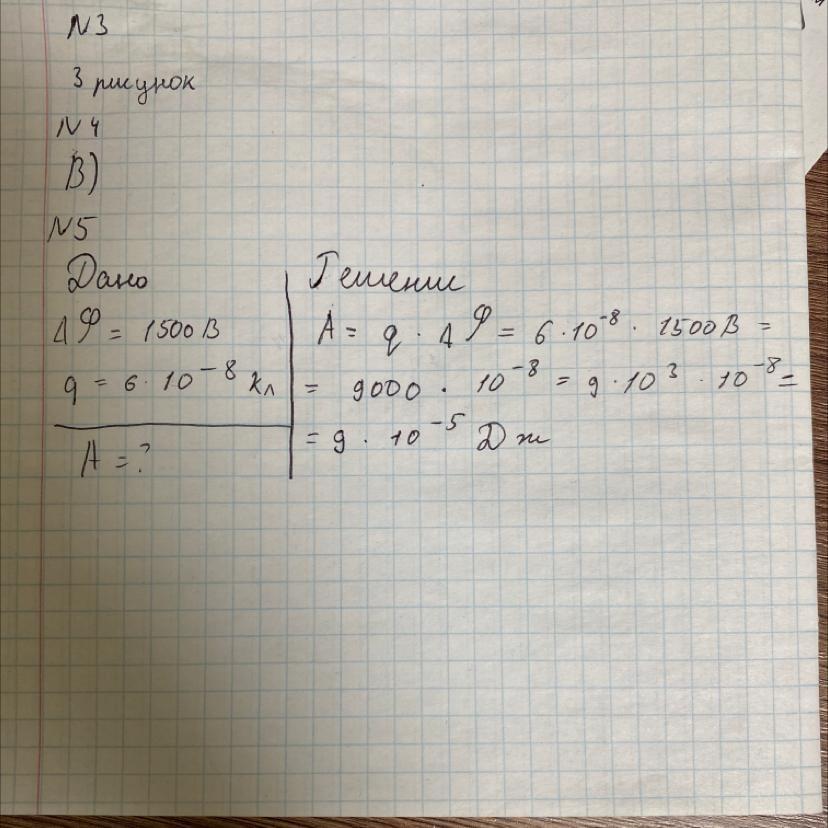 N3
3 рисунок
N4
В)
N5
Дано
Δφ = 1500 В
q = 6 · 10⁻⁸ Кл
A = ?
Решение
A = q · Δφ = 6 · 10⁻⁸ · 1500 В =
= 9000 · 10⁻⁸ = 9 · 10³ · 10⁻⁸ =
= 9 · 10⁻⁵ Дж